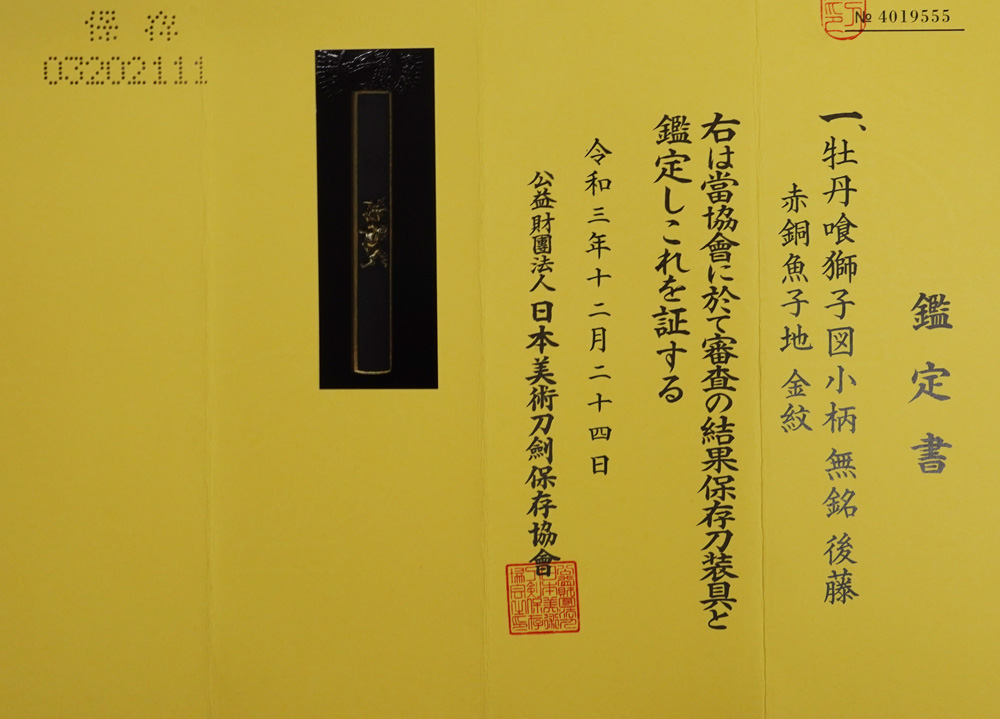 № 4019555
鑑定書
一、牡丹喰獅子図小柄 無銘 後藤
赤銅魚子地 金紋
右は當協會に於て審査の結果保存刀装具と
鑑定しこれを証する
令和三年十二月二十四日
公益財團法人 日本美術刀劍保存協會
保存
03202111